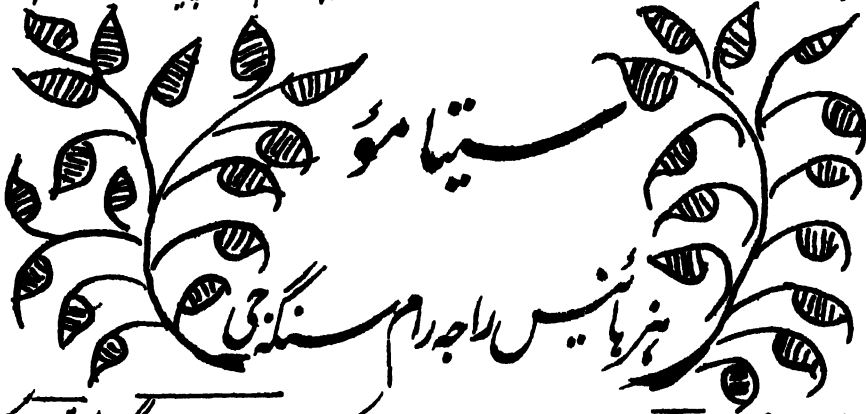 سیتا مؤ
ہزہائینس راجہ رام سنگھ جی